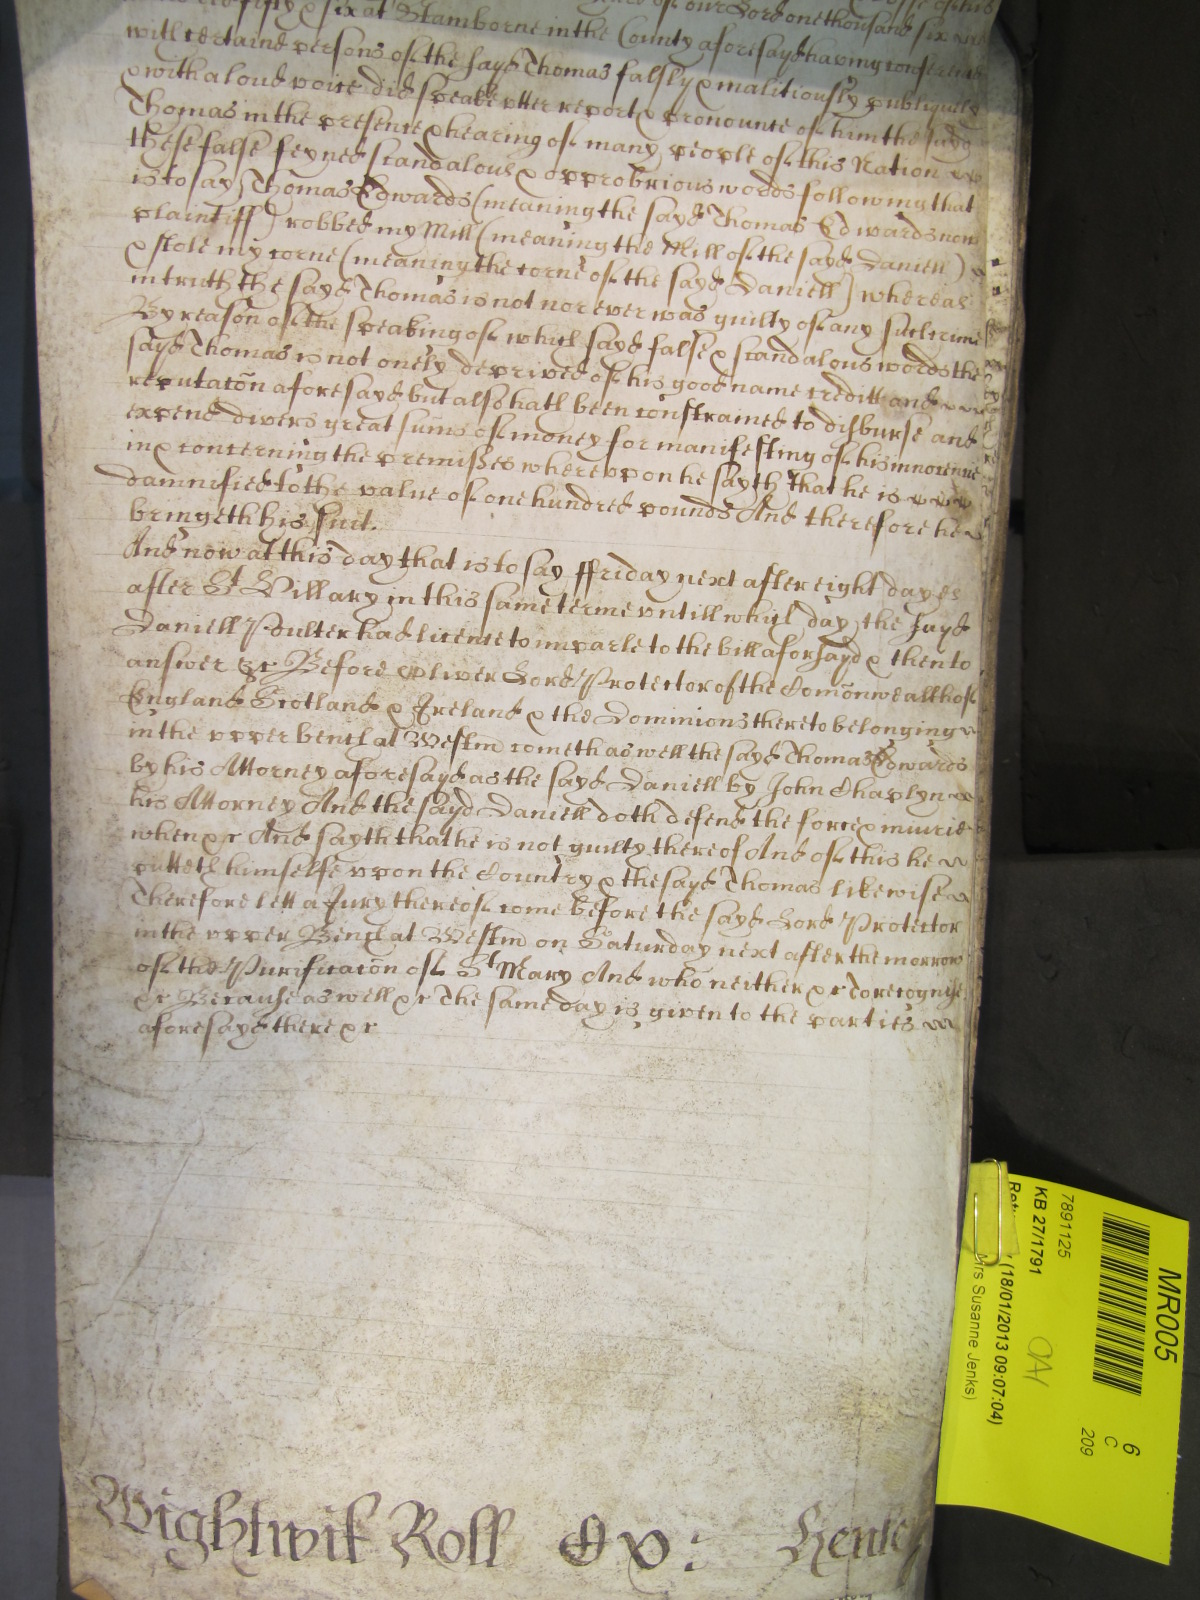 yeare of our Lord one thousand six
hundred fifty & six at Stamborne in the County aforesayd having conference
with certaine persons of the sayd Thomas falsly & malitiously publiquely
& with a loud voice did speake utter report & pronounce of him the sayd
Thomas in the presence & hearing of many people of this Nation
these false feyned scandalous & opprobrious words following that
is to say Thomas Edwards (meaning the sayd Thomas Edwards now
plaintiff) robbed my Mill (meaning the Mill of the sayd Daniell)
& stole my corne (meaning the corne of the sayd Daniell) whereas
in truth the sayd Thomas is not nor ever was guilty of any such crime
By reason of the speaking of which sayd false & scandalous words the
sayd Thomas is not onely deprived of his good name creditt and
reputacõn aforesayd but also hath been constrained to disburse and
expend divers great sum̃s of money for manifesting of his innocencie
in & concerning the premisses whereupon he sayth that he is
damnified to the value of one hundred pounds And therefore he
bringeth his suit.
And now at this day that is to say ffriday next after eight dayes
after St Hillary in this same terme untill which day the sayd
Daniell Poulter had licence to imparle to the bill aforsayd & then to
answer &c Before Oliver Lord Protector of the Com̃onwealth of
England Scotland & Ireland & the Dominions thereto belonging
in the upper bench at Westm̃ cometh as well the sayd Thomas Edwards
by his Attorney aforesayd as the sayd Daniell by John Chaplyn
his Attorney And the sayd Daniell doth defend the force & iniurie
when &c And sayth that he is not guilty thereof And of this he
putteth himselfe upon the Country & the sayd Thomas likewise
Therefore lett a Jury thereof come before the sayd Lord Protector
in the upper Bench at Westm̃ on Saturday next after the morrow
of the Purificacõn of St Mary And who neither &c To recognise
&c Because as well &c The same day is given to the parties
aforesayd there &c
Wightwik Roll Ox: Henle
MR005
6
C
209
7891125
KB 27/1791
OA1
(18/01/2013 09:07:04)
Mrs Susanne Jenks)